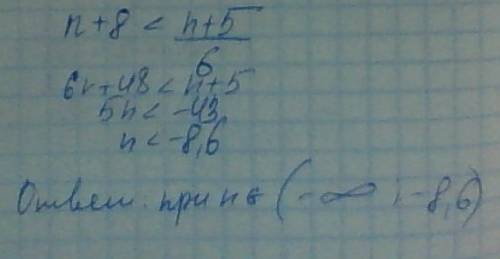 n+8 < n+5
6
6n+48 < n+5
5n < -43
n < -8,6
Ответ. при n ∈ (-∞ ; -8,6)